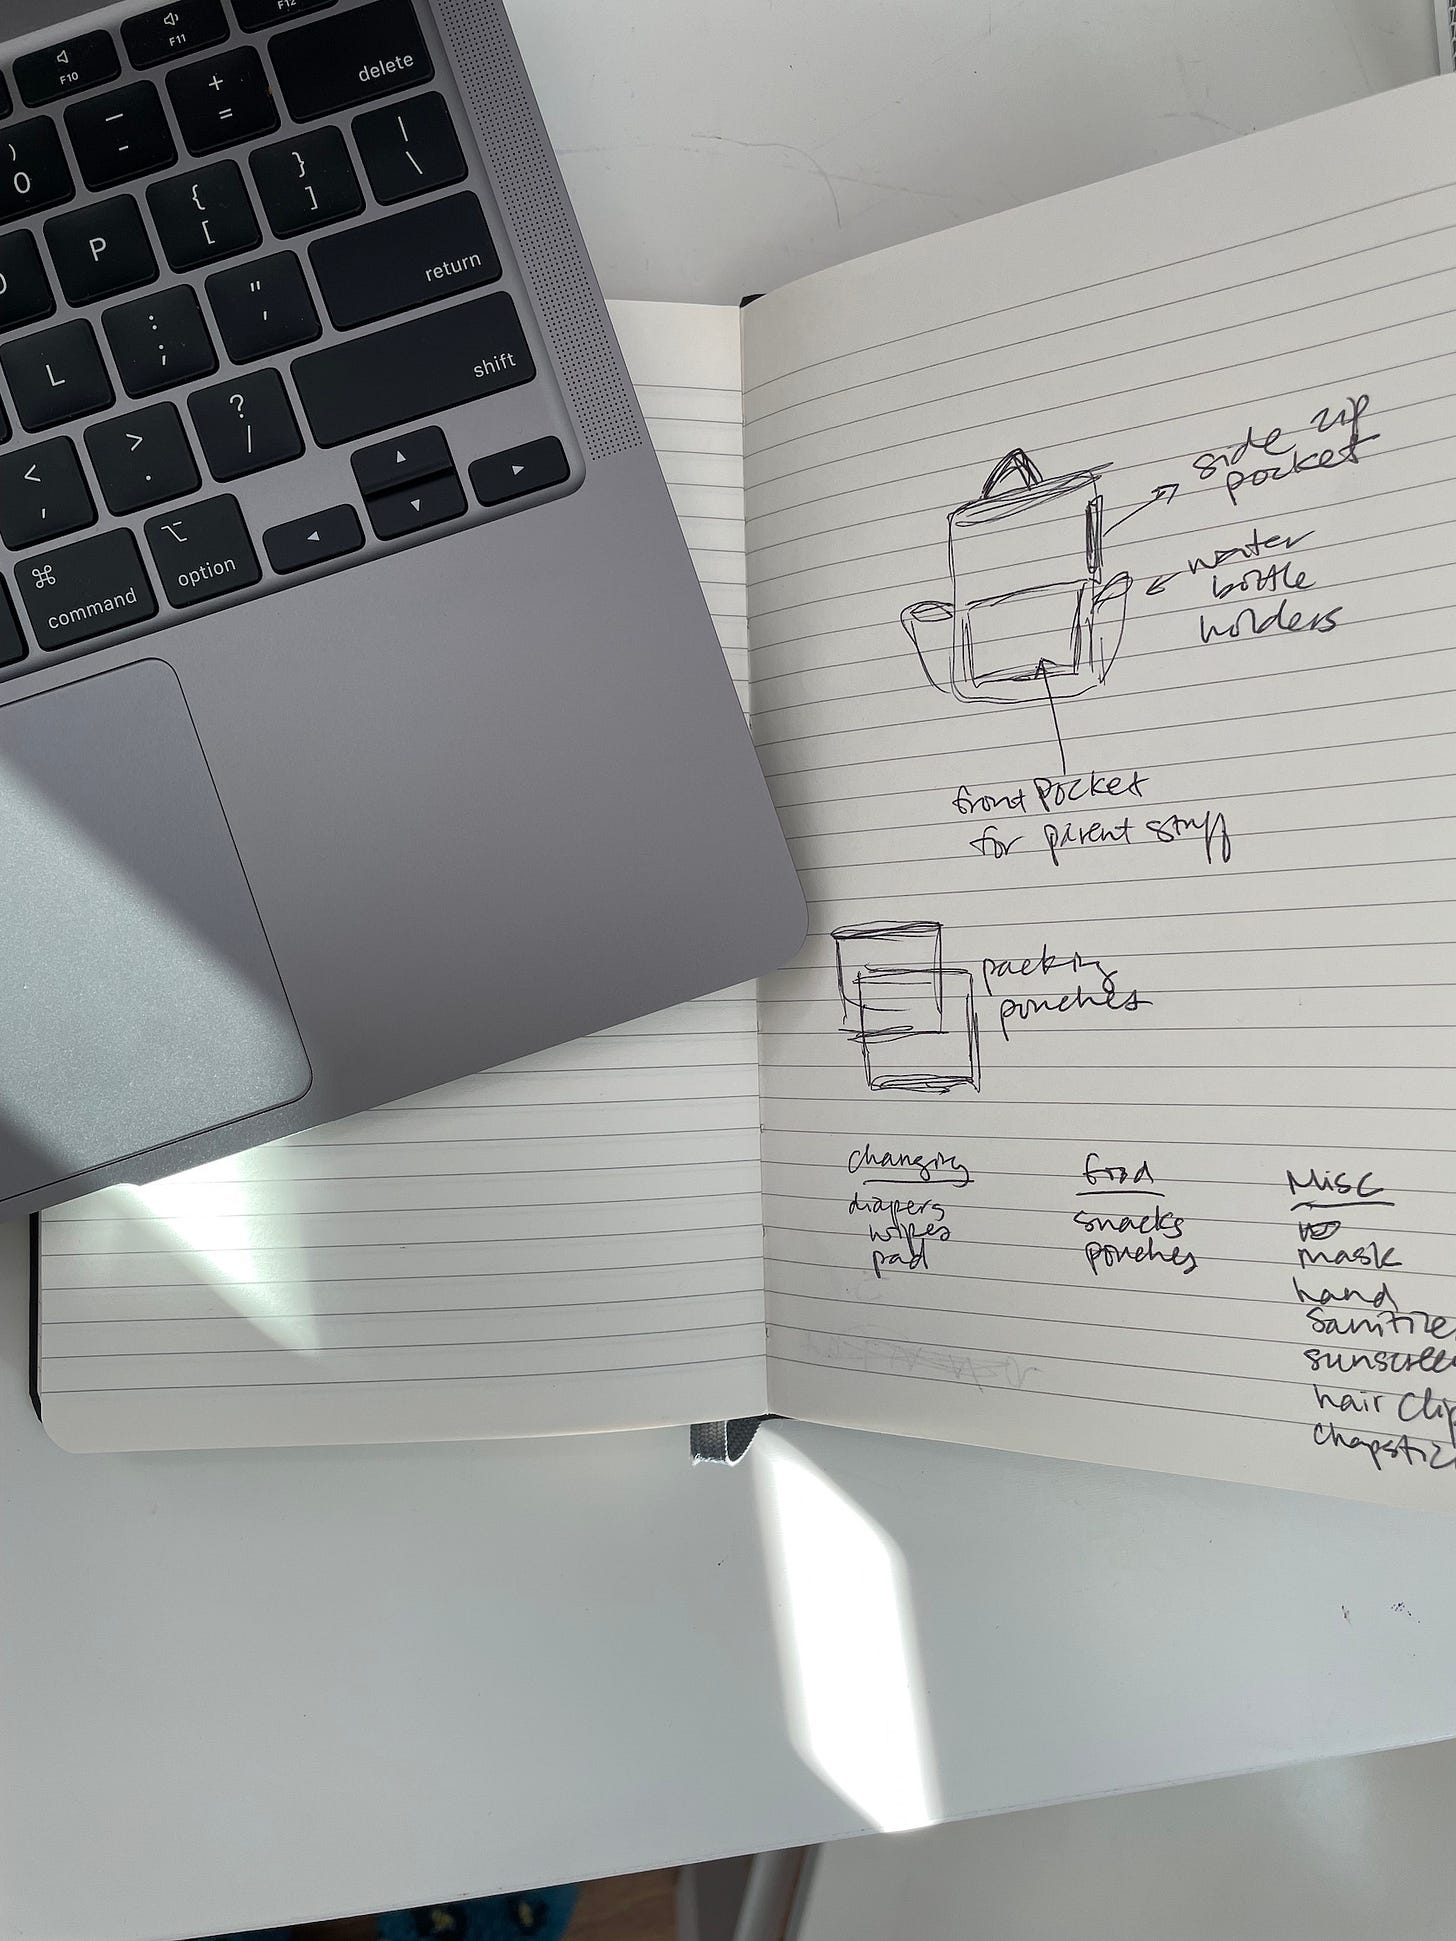 F10
F11
F12
delete
+
=
—
-
)
0
|
\
}
]
{
[
P
return
"
'
:
;
L
shift
?
/
>
.
<
,
option
command
side zip
pocket
water
bottle
holders
front Pocket
for parent stuff
packing
pouches
changing
diapers
wipes
pad
food
snacks
pouches
Misc
mask
hand
sanitize
sunscree
hair clip
chapstic